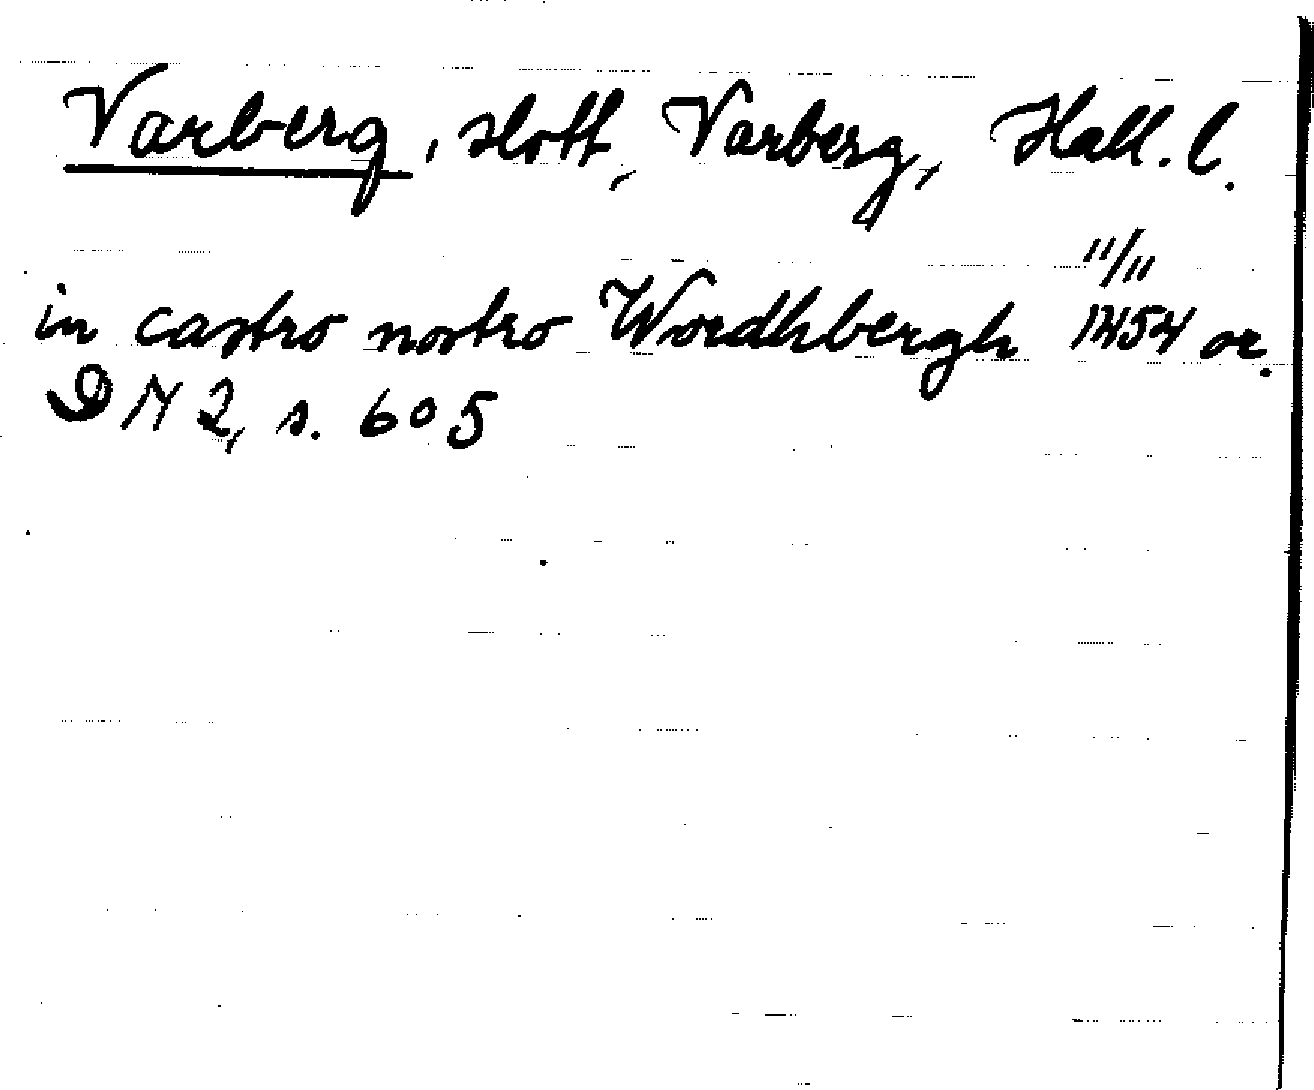 Varberg, slott, Varberg, Hall. l.
in castro nostro Wordhbergh 11/11 1454 or.
DN 2, s. 605